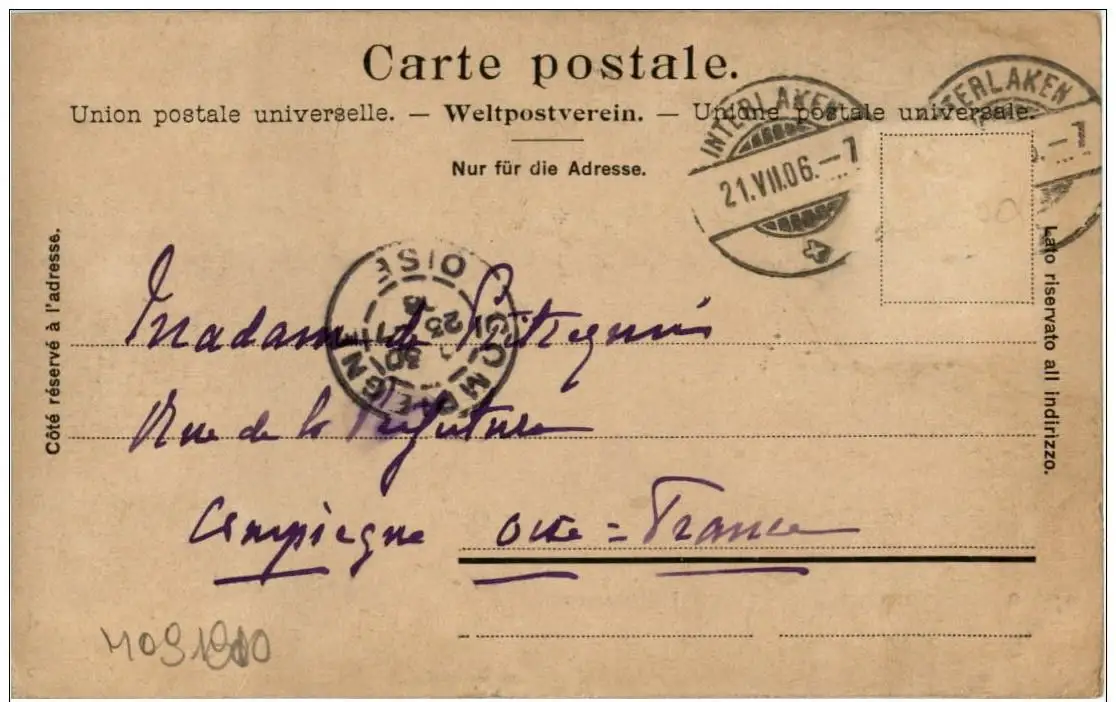 Carte postale.
Union postale universelle. — Weltpostverein. — Unione postale universale.
Nur für die Adresse.
INTERLAKEN
21.VII.06.–7
INTERLAKEN
Côté réservé à l'adresse.
Lato riservato all indirizzo.
COMPIEGNE
OISE
Madame de
Rue de la Préfecture
Compiegne Oise = France